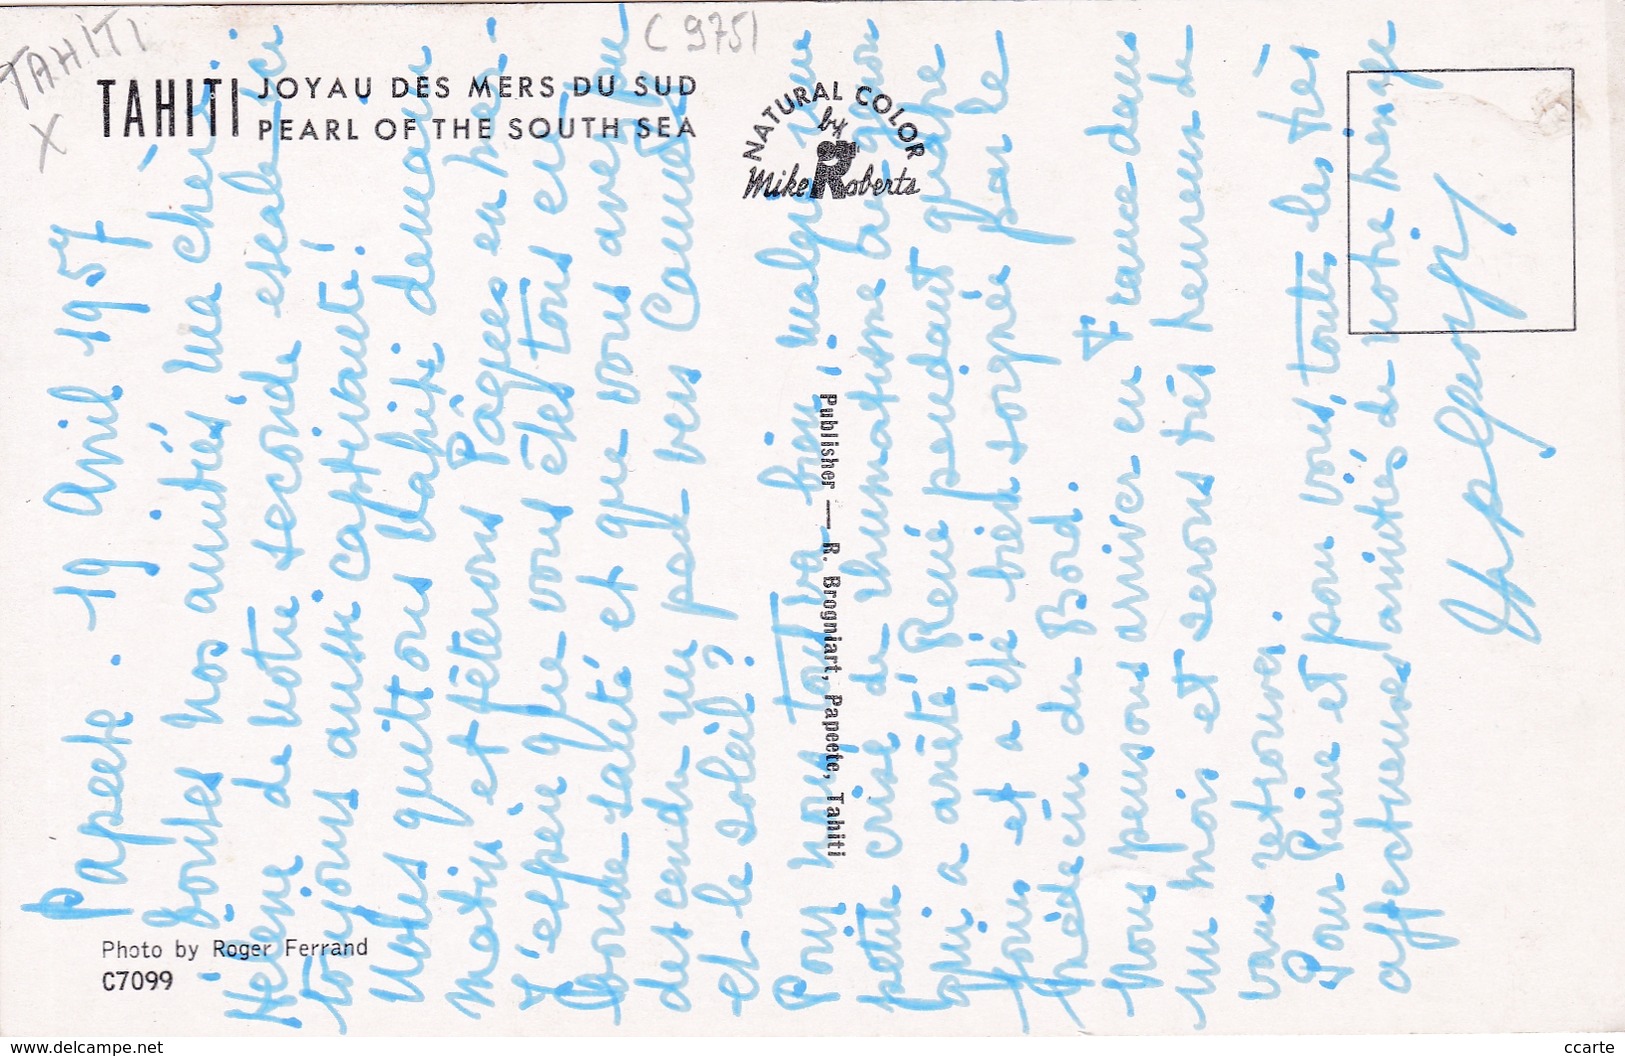 TAHITI
X
C 9751
TAHITI JOYAU DES MERS DU SUD
PEARL OF THE SOUTH SEA
NATURAL COLOR
by
Mike Roberts
Publisher — R. Brogniart, Papeete, Tahiti
Photo by Roger Ferrand
C7099
Papeete. 19 Avril 1957
Toutes nos amitiés, ma chère
Hélène de notre seconde escale ici
toujours aussi captivante!
Nous quittons Papeete demain
matin et fêterons Pâques en mer.
J'espère que vous êtes tous en
bonne santé et que vous avez pu
descendre un peu vers Cannes
et le soleil?
Pour nous tout va bien malgré une
petite crise de rhumatisme
qui a arrêté René pendant quatre
jours et a été bien soignée par le
médecin du Bord.
Nous pensons arriver en France dans
un mois et serons très heureux de
vous retrouver.
Pour Pierre et pour vous, toutes les très
affectueuses amitiés de notre ménage